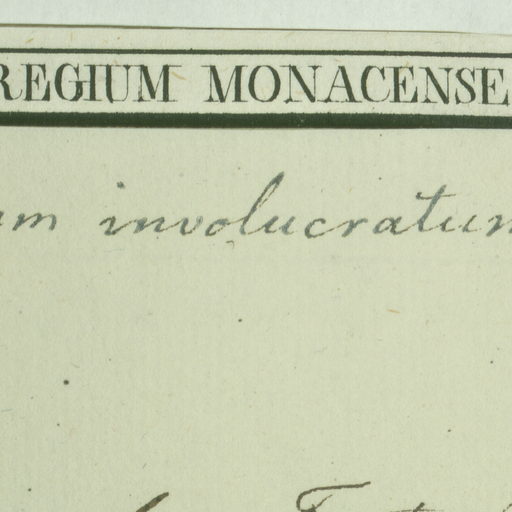 REGIUM MONACENSE
um involucratum